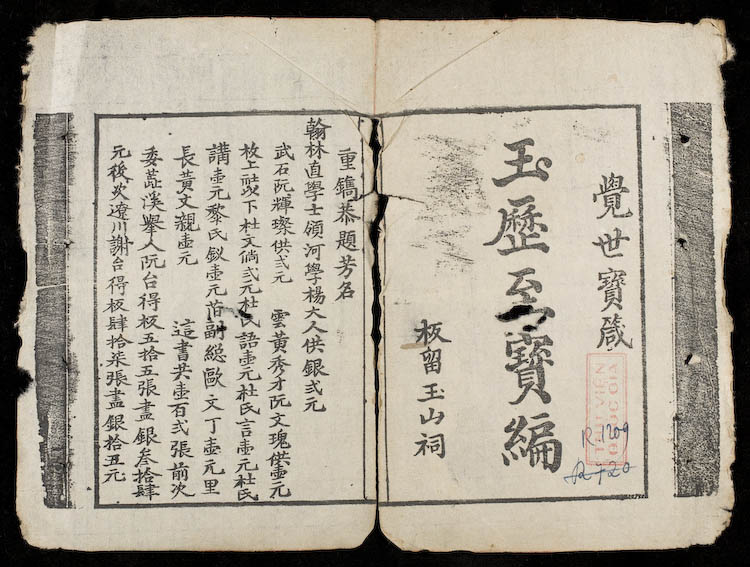 覺世寶箴
玉歷至寶編
板留玉山祠
重鐫恭題芳名
翰林直學士領河學楊大人供銀弍元
武石阮輝璨供弍元 雲黃秀才阮文瑰供壺元
枚上社下杜文倘弍元杜氏語壺元杜氏言壺元杜氏
講壺元黎氏釵壺元 副總歐文丁壺元里
長黃文親壺元 這書共壺百弍張前次
委 溪舉人阮台得板五拾五張盡銀叁拾肆
元後次遼川謝台得板肆拾柒張盡銀拾五元
THƯ VIỆN
QUỐC GIA
R.1209
R 720